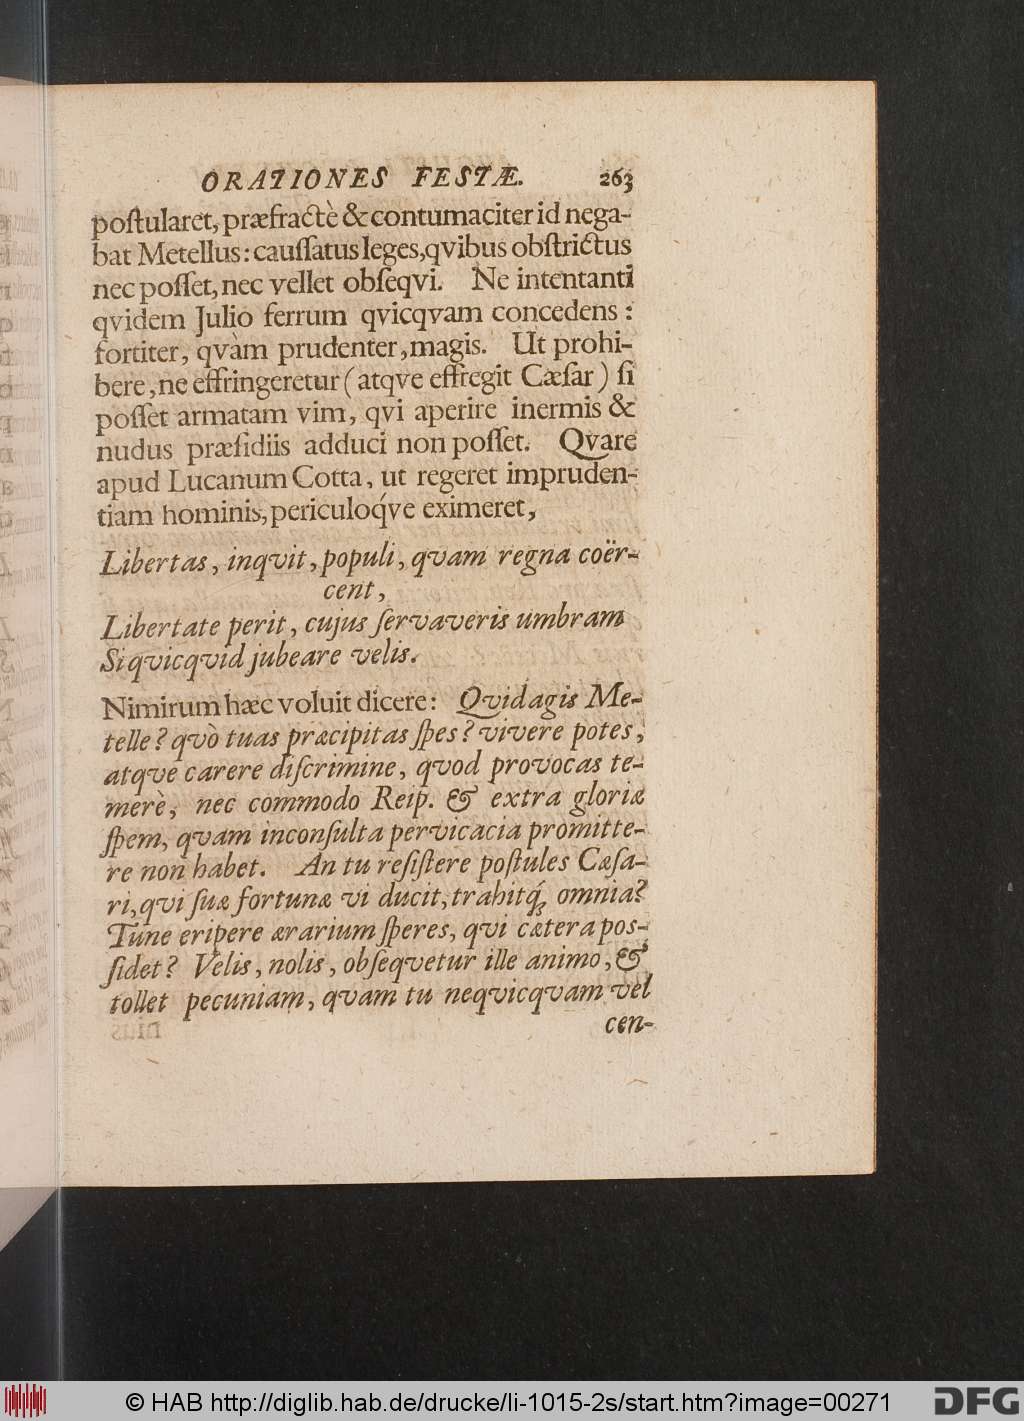 ORATIONES FESTÆ. 263
poſtularet, præfractè & contumaciter id nega-
bat Metellus: cauſſatus leges, qvibus obſtrictus
nec poſſet, nec vellet obſeqvi. Ne intentanti
qvidem Julio ferrum qvicqvam concedens:
fortiter, qvàm prudenter, magis. Ut prohi-
bere, ne effringeretur (atqve effregit Cæſar) ſi
poſſet armatam vim, qvi aperire inermis &
nudus præſidiis adduci non poſſet. Qvare
apud Lucanum Cotta, ut regeret impruden-
tiam hominis, periculoq́ve eximeret,
Libertas, inqvit, populi, qvam regna coër-
cent,
Libertate perit, cujus ſervaveris umbram
Si qvicqvid jubeare velis.
Nimirum hæc voluit dicere: Qvid agis Me-
telle? qvò tuas præcipitas ſpes? vivere potes,
atqve carere diſcrimine, qvod provocas te-
merè, nec commodo Reip. & extra gloriæ
ſpem, qvam inconſulta pervicacia promitte-
re non habet. An tu reſiſtere poſtules Cæſa-
ri, qvi ſuæ fortunæ vi ducit, trahitq́; omnia?
Tune eripere ærarium ſperes, qvi cætera poſ-
ſidet? Velis, nolis, obſeqvetur ille animo, &
tollet pecuniam, qvam tu neqvicqvam vel
cen-
© HAB http://diglib.hab.de/drucke/li-1015-2s/start.htm?image=00271
DFG